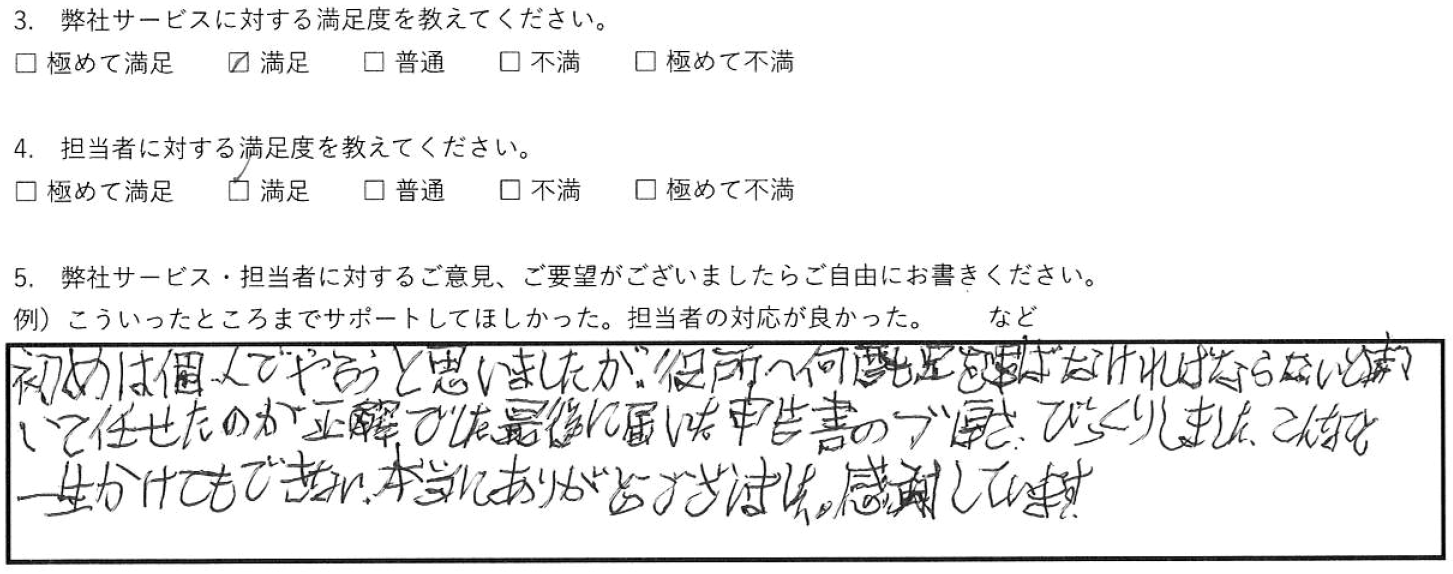 3. 弊社サービスに対する満足度を教えてください。
□ 極めて満足 ☑ 満足 □ 普通 □ 不満 □ 極めて不満
4. 担当者に対する満足度を教えてください。
□ 極めて満足 ☑ 満足 □ 普通 □ 不満 □ 極めて不満
5. 弊社サービス・担当者に対するご意見、ご要望がございましたらご自由にお書きください。
例）こういったところまでサポートしてほしかった。担当者の対応が良かった。 など
初めは個人でやろうと思いましたが、役所へ何度も足を運ばなければならないと聞
いて任せたのが正解でした。最後に届いた申告書のブ厚さ、びっくりしました、こんなと
一生かけてもできない、本当にありがとうございました。感謝しています